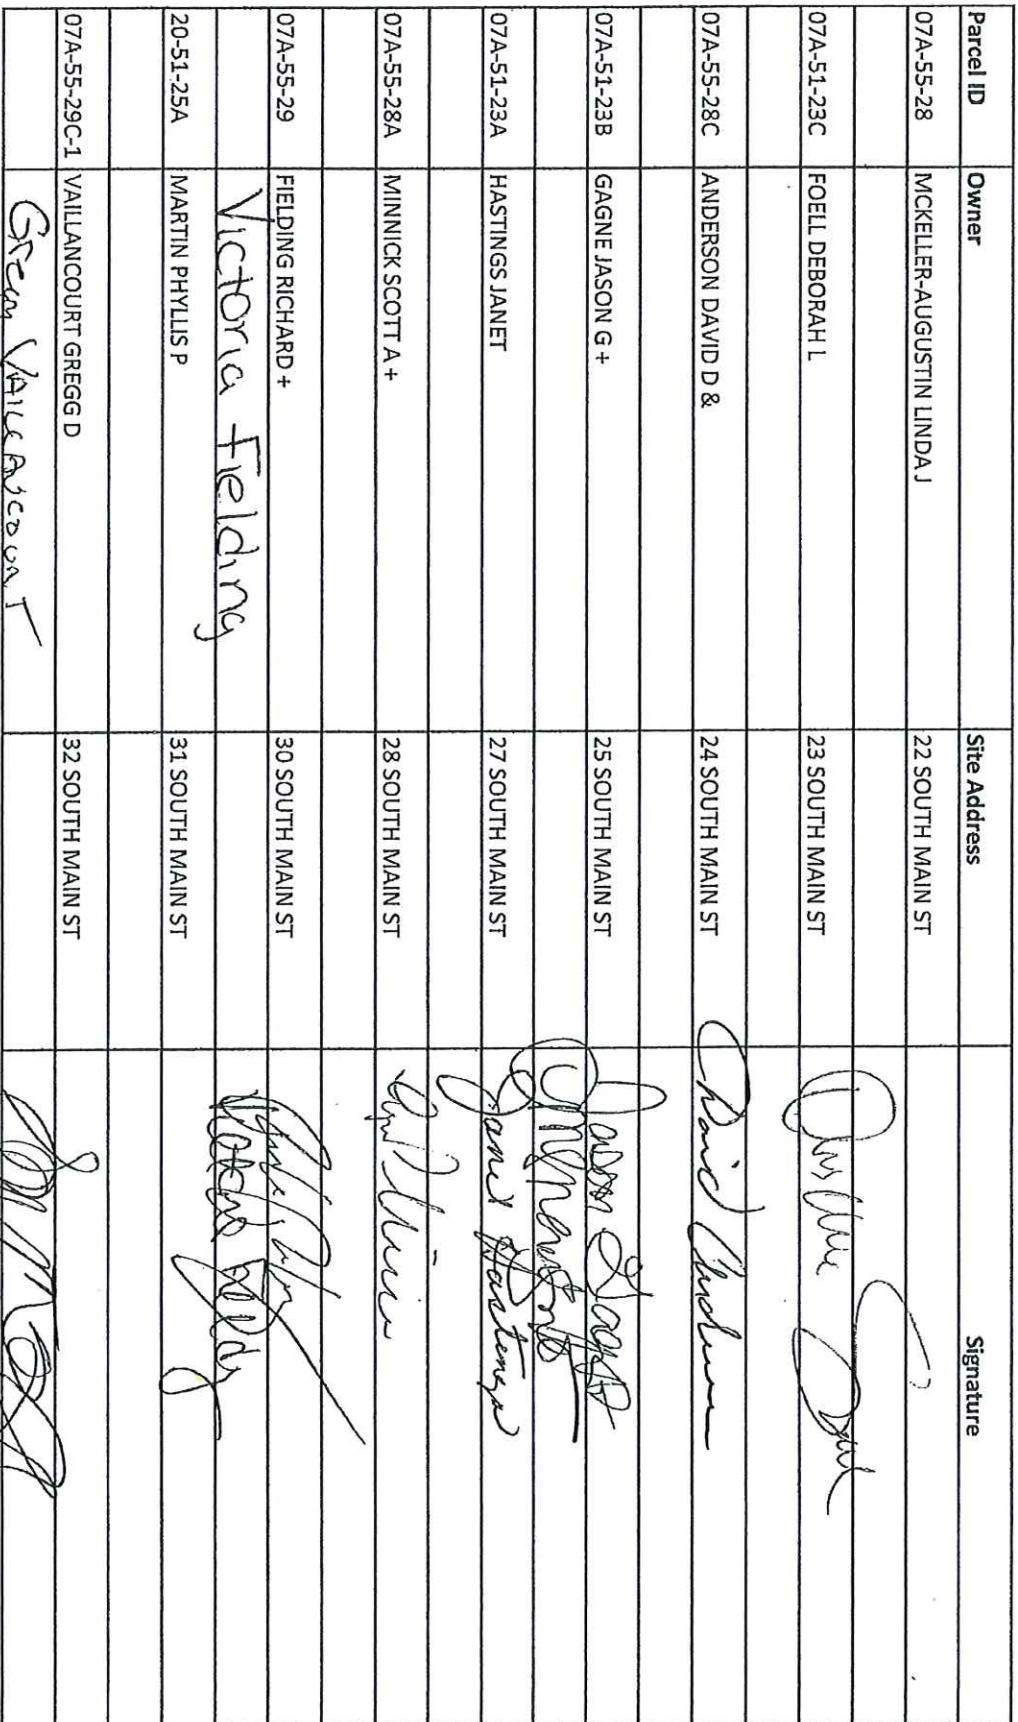 Parcel ID Owner Site Address Signature
07A-55-28 MCKELLER-AUGUSTIN LINDA J 22 SOUTH MAIN ST
07A-51-23C FOELL DEBORAH L 23 SOUTH MAIN ST
07A-55-28C ANDERSON DAVID D & 24 SOUTH MAIN ST David
07A-51-23B GAGNE JASON G + 25 SOUTH MAIN ST Jason Gagne
07A-51-23A HASTINGS JANET 27 SOUTH MAIN ST Janet Hastings
07A-55-28A MINNICK SCOTT A + 28 SOUTH MAIN ST
07A-55-29 FIELDING RICHARD + 30 SOUTH MAIN ST
Victoria Fielding
20-51-25A MARTIN PHYLLIS P 31 SOUTH MAIN ST
07A-55-29C-1 VAILLANCOURT GREGG D 32 SOUTH MAIN ST
Gregg VAILLANCOURT